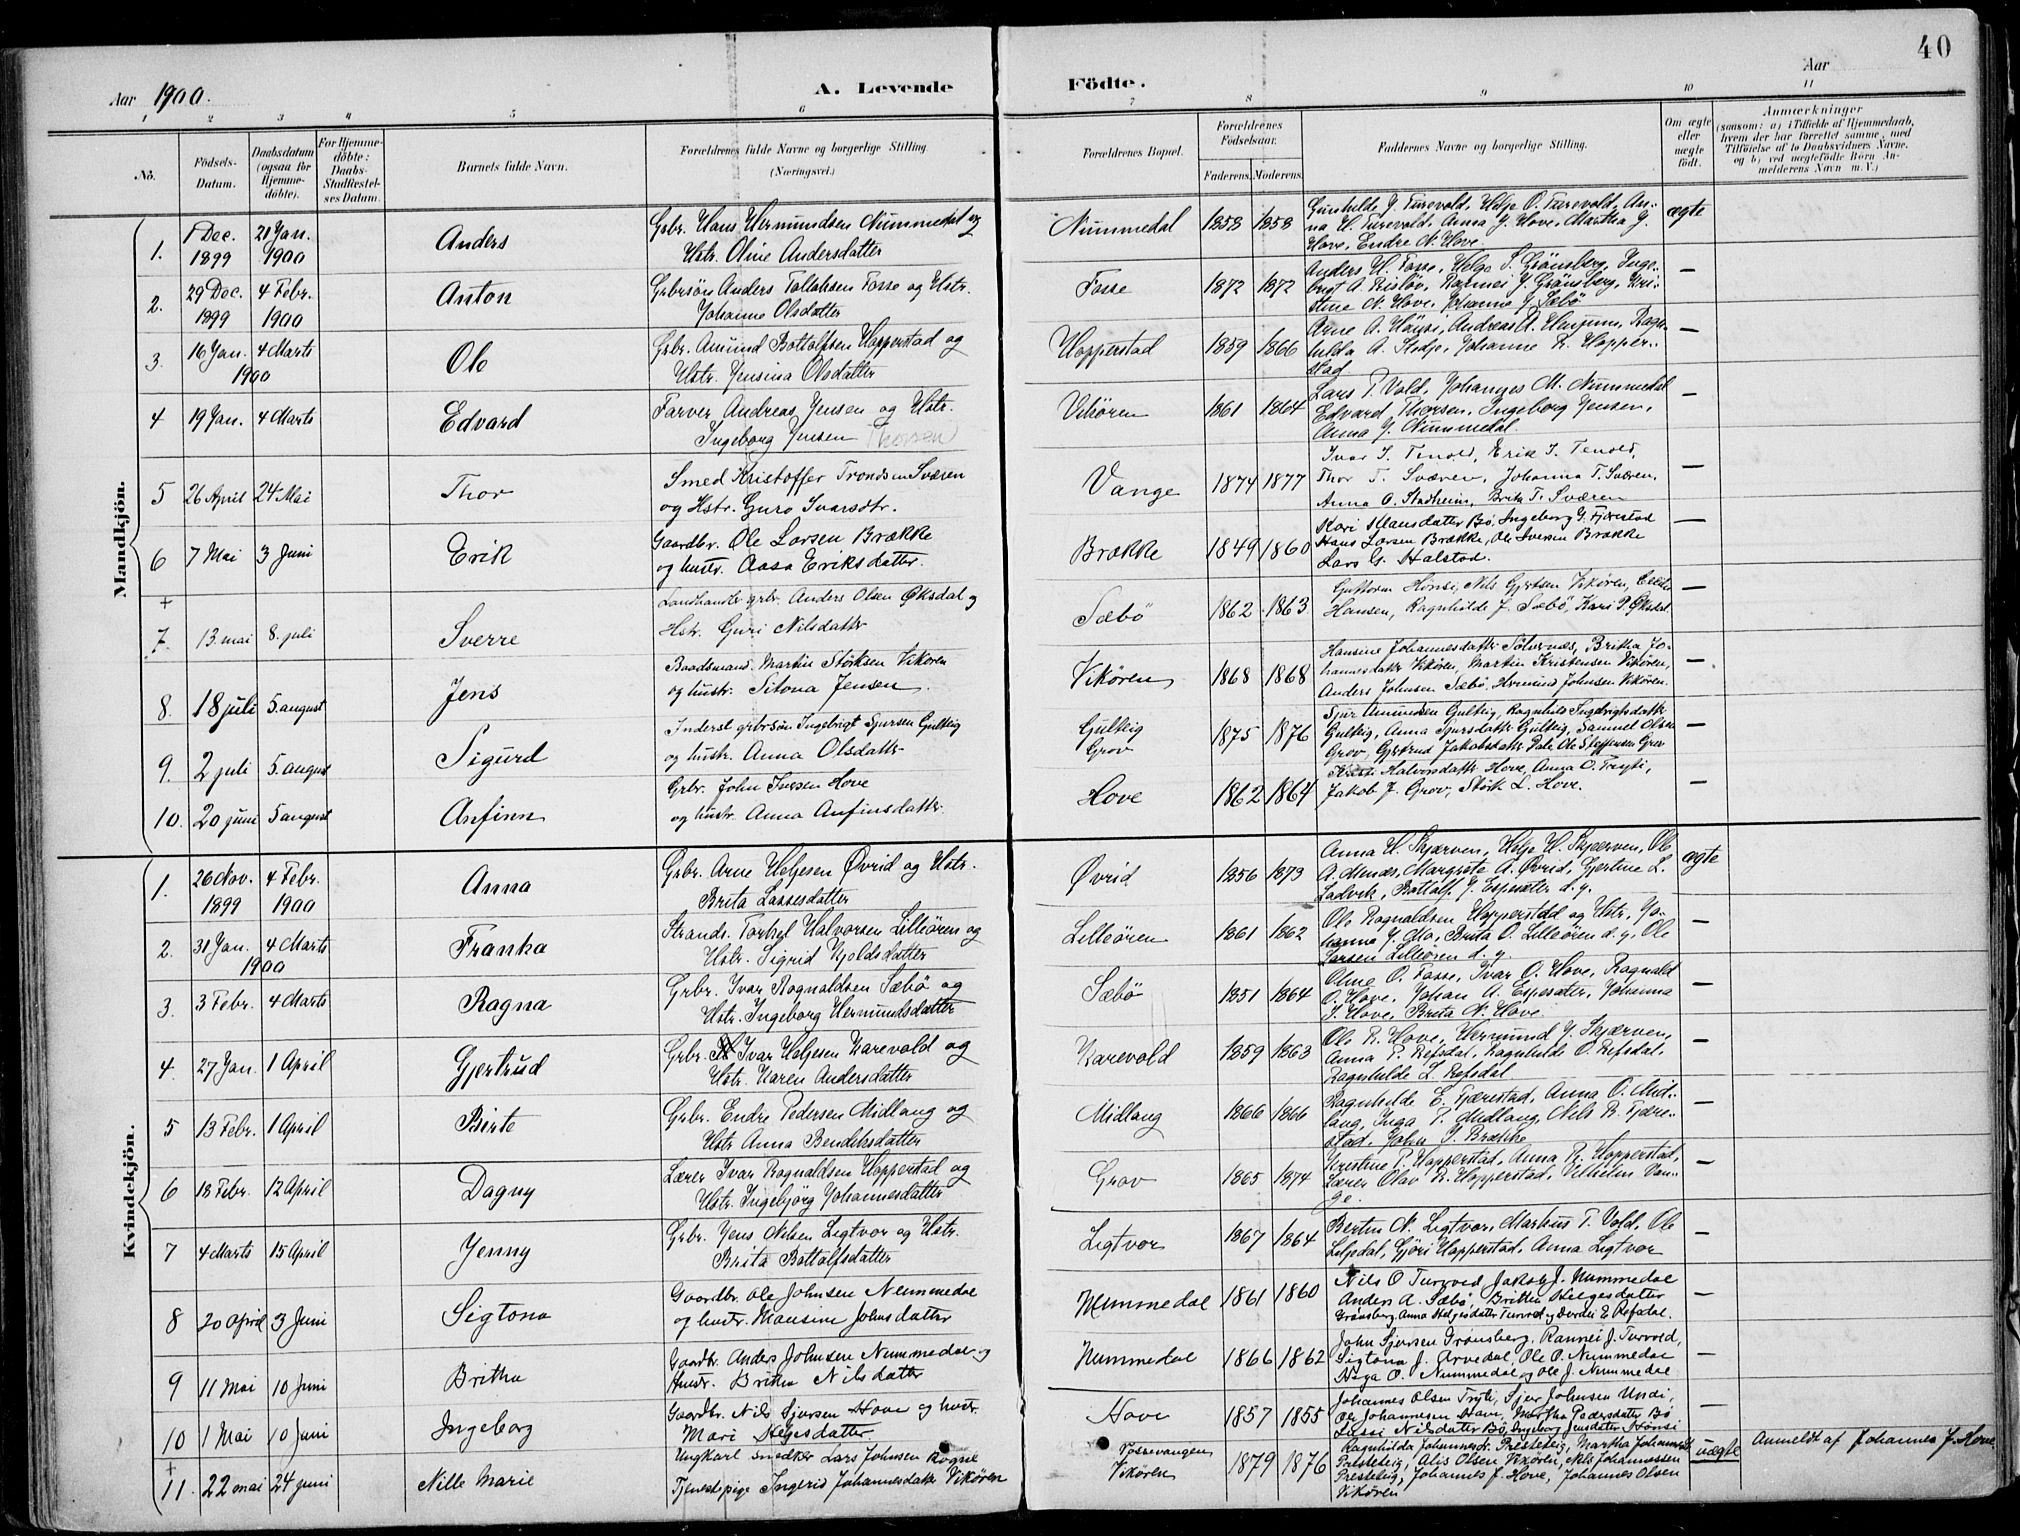 40
Aar 1900. A. Levende Fødte. Aar
1 2 3 4 5 6 7 8 9 10 11
No. Fødsels-Datum. Daabsdatum (ogsaa for Hjemmedøbte). For Hjemmedøbte: Daabs-Stadfæstelses Datum. Barnets fulde Navn. Forældrenes fulde Navne og borgerlige Stilling. (Næringsvei.) Forældrenes Bopæl. Forældrenes Fødselsaar. Faderens. Moderens. Faddernes Navne og borgerlige Stilling. Om ægte eller uægte født. Anmærkninger (saasom: a) i Tilfælde af Hjemmedaab, hvem der har forrettet samme, med Tilføielse af to Daabsvidners Navne, og b) ved uægtefødte Børn Anmelderens Navn m. V.)
Mandkjøn.
1. 1 Dec. 1899 21 Jan. 1900 Anders Grbr. Hans Hermundsen Nummedal og Hstr. Oline Andersdatter Nummedal 1853 1858 Gunhilde J. Turevold, Helje O. Turevold, Anna H. Turevold, Anna J. Hove, Martha J. Hove, Endre N. Hove. ægte
2. 29 Dec. 1899 4 Febr. 1900 Anton Grbrsøn Anders Tollaksen Fosse og Hstr. Johanne Olsdatter Fosse 1872 1872 Anders H. Fosse, Helge S. Grønsberg, Ingebrigt A. Risløv, Rannei J. Grønsberg, Kristine N. Hove, Johanne J. Sæbø —
3. 16 Jan. 4 Marts 1900 Ole Grbr. Amund Bottolfsen Hopperstad og Hstr. Jensina Olsdatter Hopperstad 1859 1866 Arne A. Hønsi, Andreas A. Henjum, Ragnhilda A. Stedje, Johanne R. Hopperstad —
4 19 Jan. 4 Marts Edvard Farver Andreas Jensen og Hstr. Ingeborg Jensen (Thorsen) Vikøren 1861 1864 Lars T. Vold, Johannes M. Nummedal Edvard Thorsen, Ingeborg Jensen, Anna J. Nummedal. —
5 26 April 24 Mai Thor Smed Kristoffer Trondsen Sværen og Hstr. Guro Ivarsdtr. Vange 1874 1877 Ivar I. Tenold, Erik I. Tenold, Thor T. Sværen, Johanna T. Sværen, Anna O. Stadheim, Brita T. Sværen —
6 7 Mai 3 Juni Erik Gaardbr. Ole Larsen Brække og hustr. Aasa Eriksdatter. Brække 1849 1860 Kari Hansdatter Bø, Ingeborg G. Fjærestad Hans Larsen Brække, Ole Iversen Brække Lars G. Halstad. —
+
7. 13 mai 8. juli Sverre Landhandler grbr. Anders Olsen Øksdal og Hstr. Guri Nilsdattr Sæbø 1862 1863 Guttorm Hønsi, Nils Gjertsen Vikøren, Hansen, Ragnhilde J. Sæbø, Kari P. Øksdal —
8. 18 juli 5. august Jens Baadsmand Martin Størksen Vikøren og hustr. Sitona Jensen. Vikøren 1868 1868 Hansine Johannesdattr Solsnæs, Britha Johannesdattr Vikøren, Martin Kristensen Vikøren, Anders Johnsen Sæbø, Hermund Johnsen Vikøren. —
9. 2 juli 5. august Sigurd Inderst grbrsøn Ingebrigt Sjursen Gulteig og hustr. Anna Olsdattr Gulteig Grov 1875 1876 Sjur Amundsen Gulteig, Ragnhild Ingebrigtsdattr Gulteig, Anna Sjursdattr Gulteig, Samuel Olsen Grov, Gjertrud Jakobsdattr Pale, Ole Steffensen Grov —
10. 20 juni 5 august Anfinn Grbr. John Iversen Hove og hustr. Anna Anfinsdattr. Hove 1862 1864 Halvorsdattr Hove, Anna O. Tryti, Jakob J. Grov, Størk L. Hove. —
Kvindekjøn.
1. 26 Nov. 1899 4 Febr. 1900 Anna Grbr. Arne Heljesen Øvrid og Hstr. Brita Lassesdatter Øvrid 1856 1873 Anna H. Skjærven, Helje H. Skjærven, Ole A. Menæs, Margrete A. Øvrid, Gjertine L. Ladvik, Bottolf J. Espesæter d. y. ægte
2. 31 Jan. 4 Marts 1900 Franka Strands. Torkel Halvorsen Lilleøren og Hstr. Sigrid Kjoldsdatter Lilleøren 1861 1862 Ole Ragnaldsen Hopperstad og Hstr., Johanna J. Mo, Brita O. Lilleøren d. y., Ole Larsen Lilleøren d. y. —
3. 3 Febr. 4 Marts Ragna Grbr. Ivar Ragnaldsen Sæbø og Hstr. Ingeborg Hermundsdatter Sæbø 1851 1864 Oline O. Fosse, Ivar O. Hove, Ragnald O. Hove, Johan A. Espesæter, Johanna I. Hove, Brita N. Hove. —
4. 27 Jan. 1 April Gjertrud Grbr. Ivar Heljesen Karevold og Hstr. Karen Andersdatter Karevold 1859 1863 Ole R. Hove, Hermund J. Skjærven, Anna P. Refsdal, Ragnhilde O. Refsdal, Ragnhilde L. Refsdal —
5 13 Febr. 1 April Birte Grbr. Endre Pedersen Midlang og Hstr Anna Bendiksdatter Midlang 1866 1866 Ragnhilde E. Fjærestad, Anna O. Midlang, Inga P. Midlang, Nils R. Fjærestad, John I. Brække —
6 18 Febr. 12 April Dagny Lærer Ivar Ragnaldsen Hopperstad og Hstr. Ingebjørg Johannesdatter Grov 1865 1874 Kristine P. Hopperstad, Anna R. Hopperstad, Lærer Olav R. Hopperstad, Vilhelm Vange. —
7 4 Marts 15 April Jenny Grbr. Jens Nilsen Ligtvor og Hstr. Brita Bottolfsdatter Ligtvor 1867 1864 Bertin N. Ligtvor, Markus T. Vold, Ole Lilpdal, Gjøri Hopperstad, Anna Ligtvor —
8 20 April 3 Juni Sigtona Gaardbr. Ole Johnsen Nummedal og hustr. Hansine Johnsdatter Nummedal 1861 1860 Nils O Turvod, Jakob J. Nummedal Anders A. Sæbø Britten Helgesdatter Grønsberg, Anna Helgesdatter Turvod og Dordei E. Refsdal. —
9 11 Mai 10 Juni Britha Gaardbr. Anders Johnsen Nummedal og Hustr. Britha Nilsdatter Nummedal 1866 1862 John Sjursen Grønsberg, Rannei J. Turvod, Sigtona J. Arvedal, Ole O. Nummedal O. Nummedal og Ole J. Nummedal —
10 1 Mai 10 Juni Ingeborg Gaardbr. Nils Sjursen Hove og hustr. Mari Helgesdatter Hove 1857 1855 Johannes Olsen Tryti, Sjur Johnsen Undi, Ole Johannesen Hove, Martha Pedersdatter Bø, Nilsdatter Bø, Ingeborg Jensdatter Hønsi —
+
11 22 mai 24 juni Nille Marie Ungkarl snedker Lars Johnsen Rogne Tjenestpige Ingerid Johannesdattr Vikøren Vossevangen Vikøren 1879 1876 Ragnhilda Johannesdr. Presteteig, Martha Johannesdtr Presteteig, Alis Olsen Vikøren, Nils Johannessen Presteteig, Johannes J. Hove, Johannes Olsen Vikøren uægte Anmeldt af Johannes J. Hove.